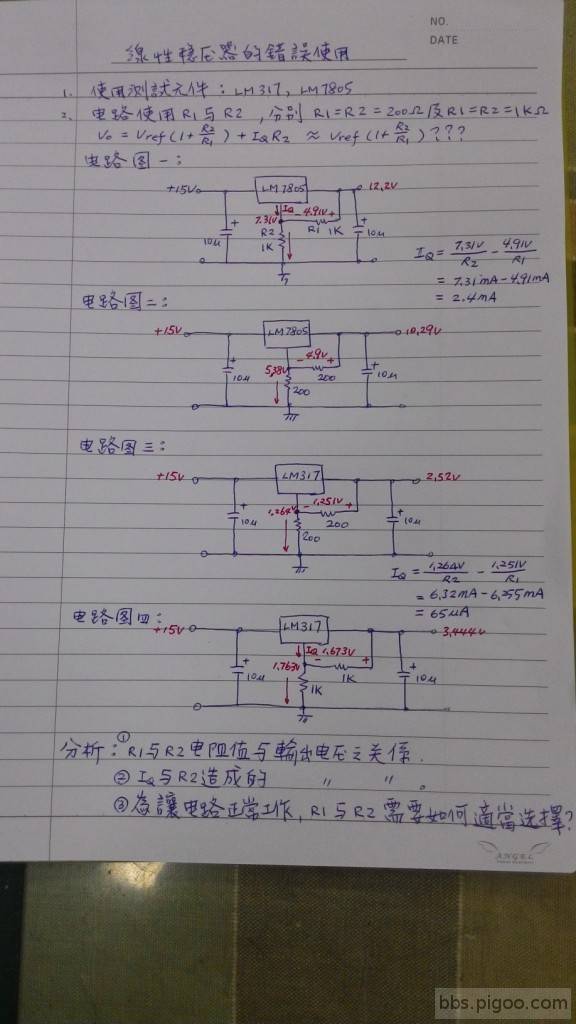 NO.
DATE
線性稳压器的錯誤使用
1. 使用測試元件: LM317, LM7805
2. 电路使用R1与R2, 分別 R1=R2=200Ω及R1=R2=1KΩ
Vo = Vref(1+R2/R1) + IQR2 ≈ Vref(1+R2/R1)???
电路图一:
+15V LM7805 12.2V
IQ - 4.91V +
7.31V R1 1K
R2 1K
+ 10μ + 10μ
IQ = 7.31V/R2 - 4.91V/R1
= 7.31mA - 4.91mA
= 2.4mA
电路图二:
+15V LM7805 10.29V
- 4.9V +
5.38V 200
200
+ 10μ + 10μ
电路图三:
+15V LM317 2.52V
- 1.251V +
1.264V 200
200
+ 10μ + 10μ
IQ = 1.264V/R2 - 1.251V/R1
= 6.32mA - 6.255mA
= 65μA
电路图四:
+15V LM317 3.444V
IQ 1.673V
- +
1.763V 1K
1K
+ 10μ + 10μ
分析: ① R1与R2电阻值与輸出电压之关係.
② IQ与R2造成的 〃 〃 。
③ 為讓电路正常工作, R1与R2需要如何適當选擇?
ANGEL
bbs.pigoo.com